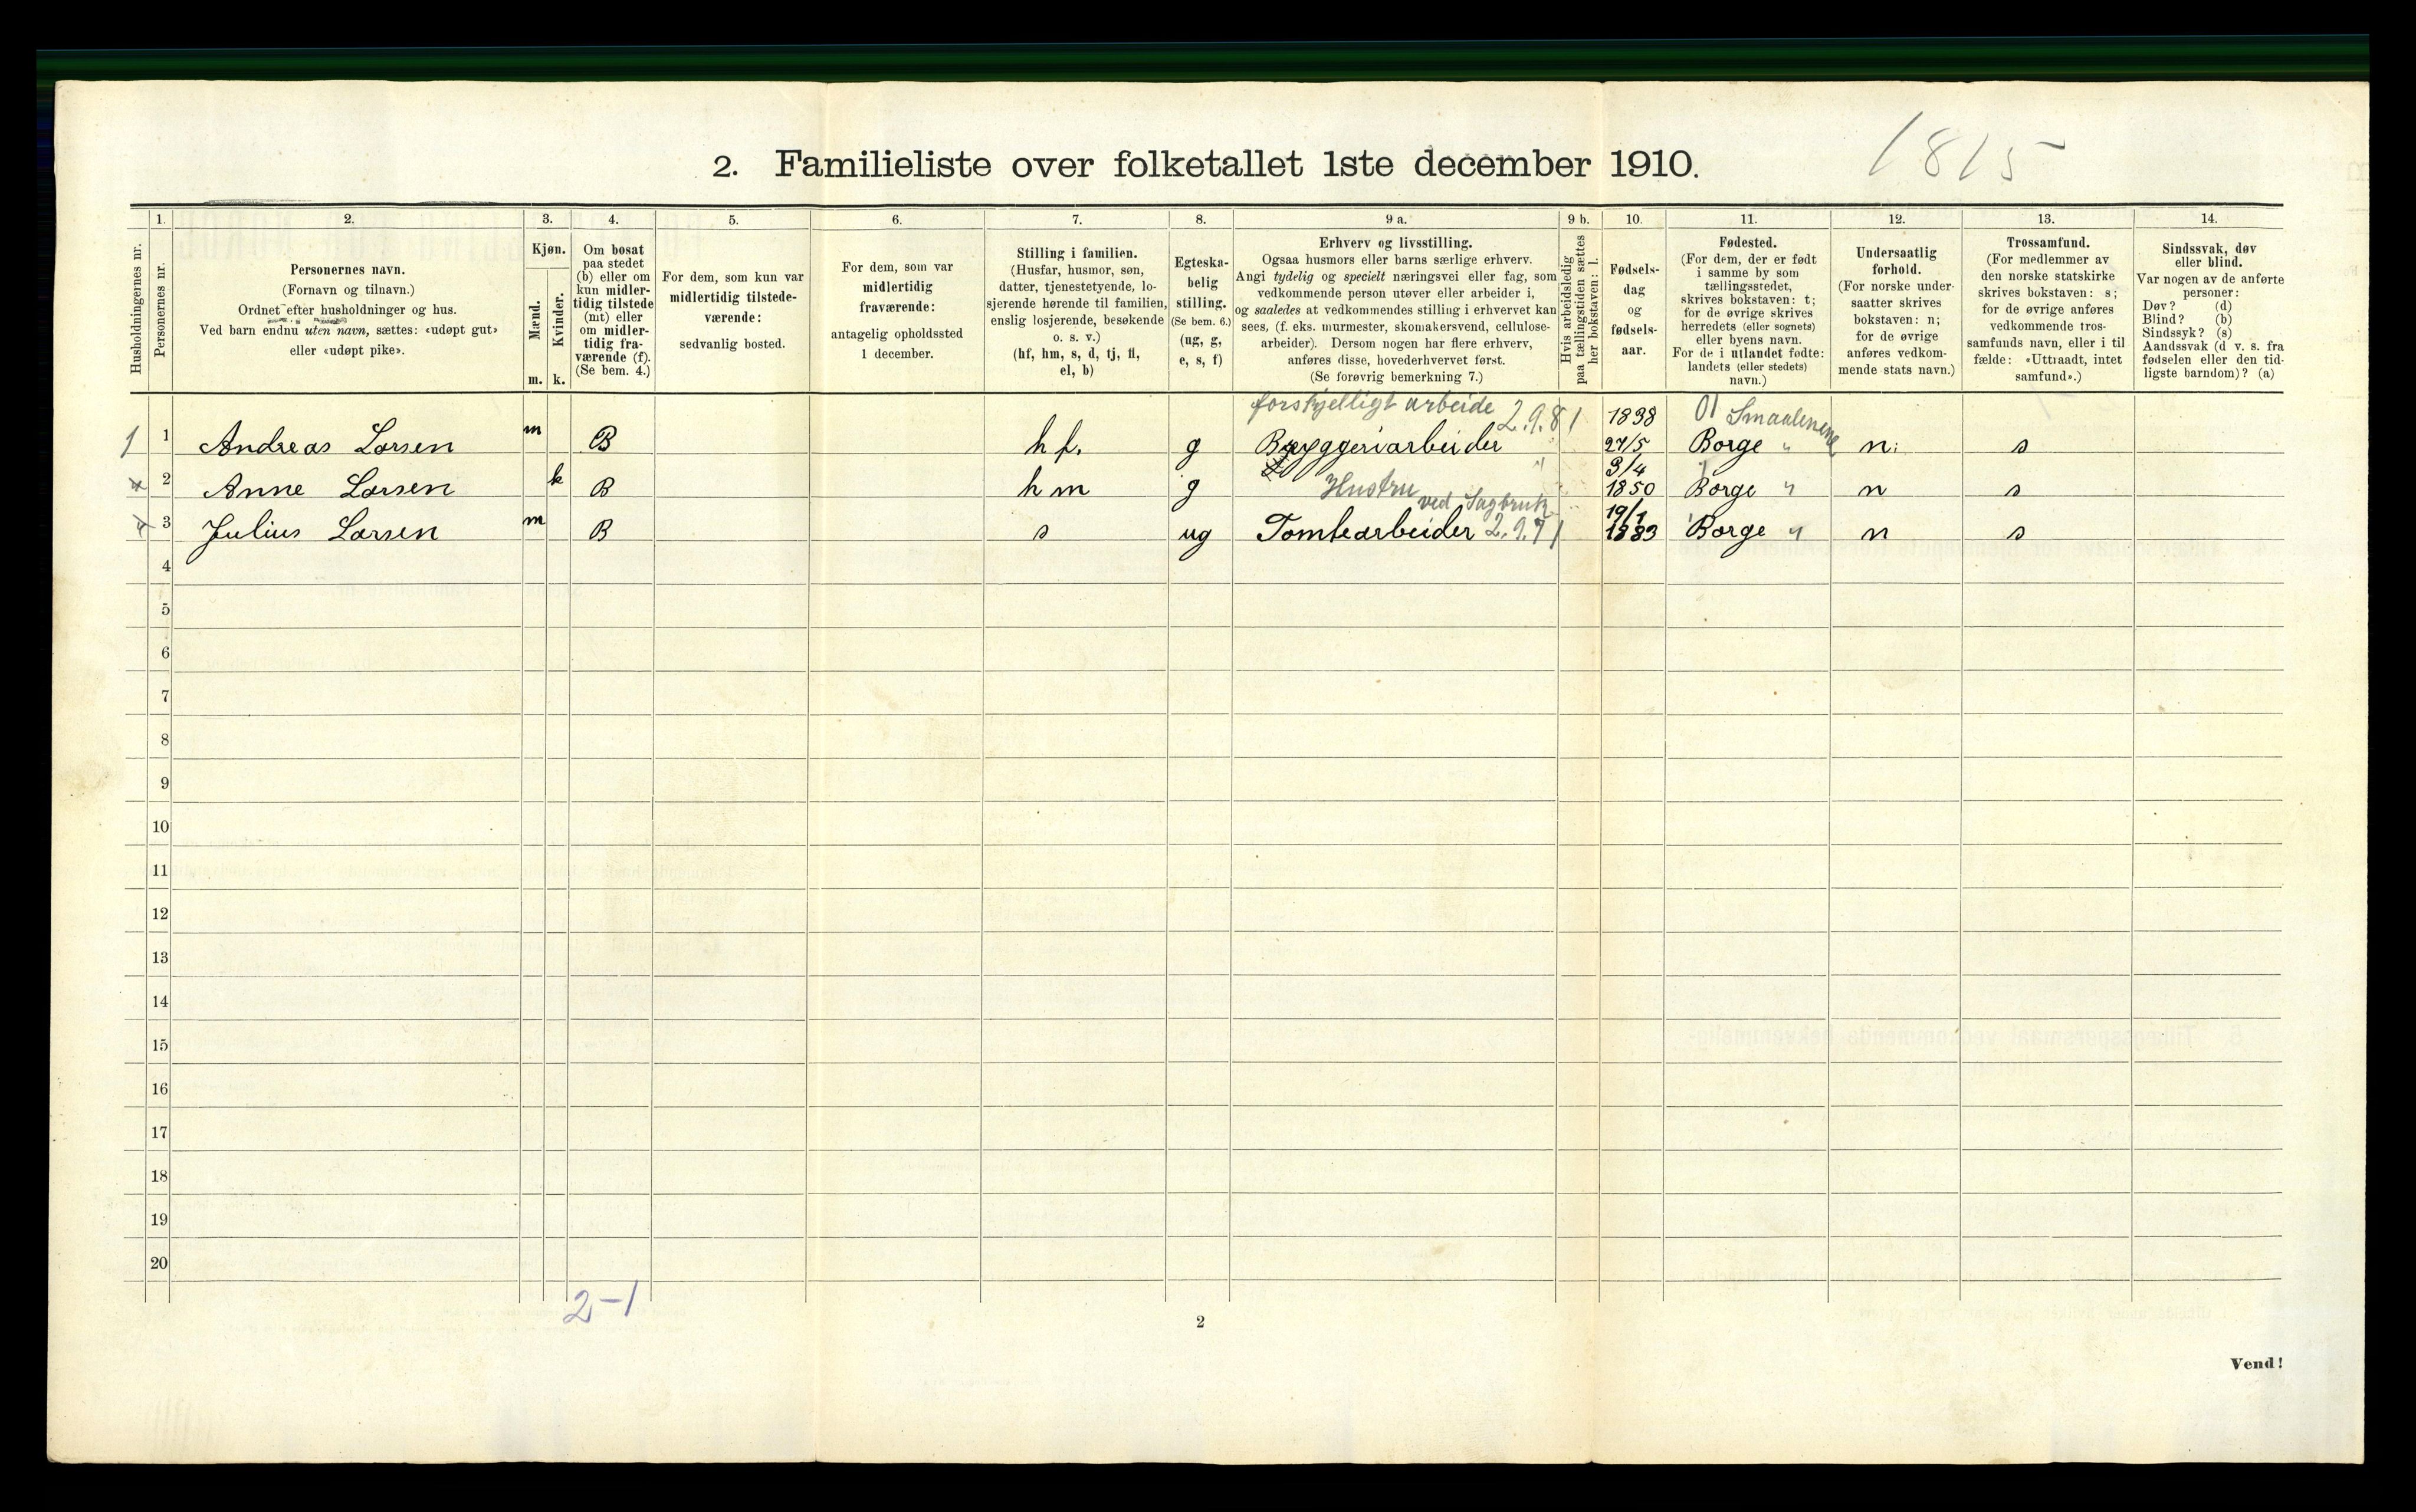 1815
2. Familieliste over folketallet 1ste december 1910.
1. 2. 3. 4. 5. 6. 7. 8. 9 a. 9 b. 10. 11. 12. 13. 14.
Husholdningernes nr.
Personernes nr.
Personernes navn.
(Fornavn og tilnavn.)
Ordnet efter husholdninger og hus.
Ved barn endnu uten navn, sættes: «udøpt gut»
eller «udøpt pike».
Kjøn.
Mænd.
Kvinder.
m. k.
Om bosat
paa stedet
(b) eller om
kun midler-
tidig tilstede
(mt) eller
om midler-
tidig fra-
værende (f).
(Se bem. 4.)
For dem, som kun var
midlertidig tilstede-
værende:
sedvanlig bosted.
For dem, som var
midlertidig
fraværende:
antagelig opholdssted
1 december.
Stilling i familien.
(Husfar, husmor, søn,
datter, tjenestetyende, lo-
sjerende hørende til familien,
enslig losjerende, besøkende
o. s. v.)
(hf, hm, s, d, tj, fl,
el, b)
Egteska-
belig
stilling.
(Se bem. 6.)
(ug, g,
e, s, f)
Erhverv og livsstilling.
Ogsaa husmors eller barns særlige erhverv.
Angi tydelig og specielt næringsvei eller fag, som
vedkommende person utøver eller arbeider i,
og saaledes at vedkommendes stilling i erhvervet kan
sees, (f. eks. murmester, skomakersvend, cellulose-
arbeider). Dersom nogen har flere erhverv,
anføres disse, hovederhvervet først.
(Se forøvrig bemerkning 7.)
Hvis arbeidsledig
paa tællingstiden sættes
her bokstaven: l.
Fødsels-
dag
og
fødsels-
aar.
Fødested.
(For dem, der er født
i samme by som
tællingsstedet,
skrives bokstaven: t;
for de øvrige skrives
herredets (eller sognets)
eller byens navn.
For de i utlandet fødte:
landets (eller stedets)
navn.)
Undersaatlig
forhold.
(For norske under-
saatter skrives
bokstaven: n;
for de øvrige
anføres vedkom-
mende stats navn.)
Trossamfund.
(For medlemmer av
den norske statskirke
skrives bokstaven: s;
for de øvrige anføres
vedkommende tros-
samfunds navn, eller i til
fælde: «Uttraadt, intet
samfund».)
Sindssvak, døv
eller blind.
Var nogen av de anførte
personer:
Døv? (d)
Blind? (b)
Sindssyk? (s)
Aandssvak (d v. s. fra
fødselen eller den tid-
ligste barndom)? (a)
forskjelligt arbeide 2.9.8 1 1838 01 Smaalenene
1 1 Andreas Larsen m B hf. g Bryggeriarbeider 27/5 Borge " n: s
3/4
2 Anne Larsen k B hm g Hustru 1850 Borge " n s
ved Sagbruk 19/1
3 Julius Larsen m B s ug Tomtearbeider 2.9.7 1 1883 Borge " n s
4
5
6
7
8
9
10
11
12
13
14
15
16
17
18
19
20
2-1
2
Vend!